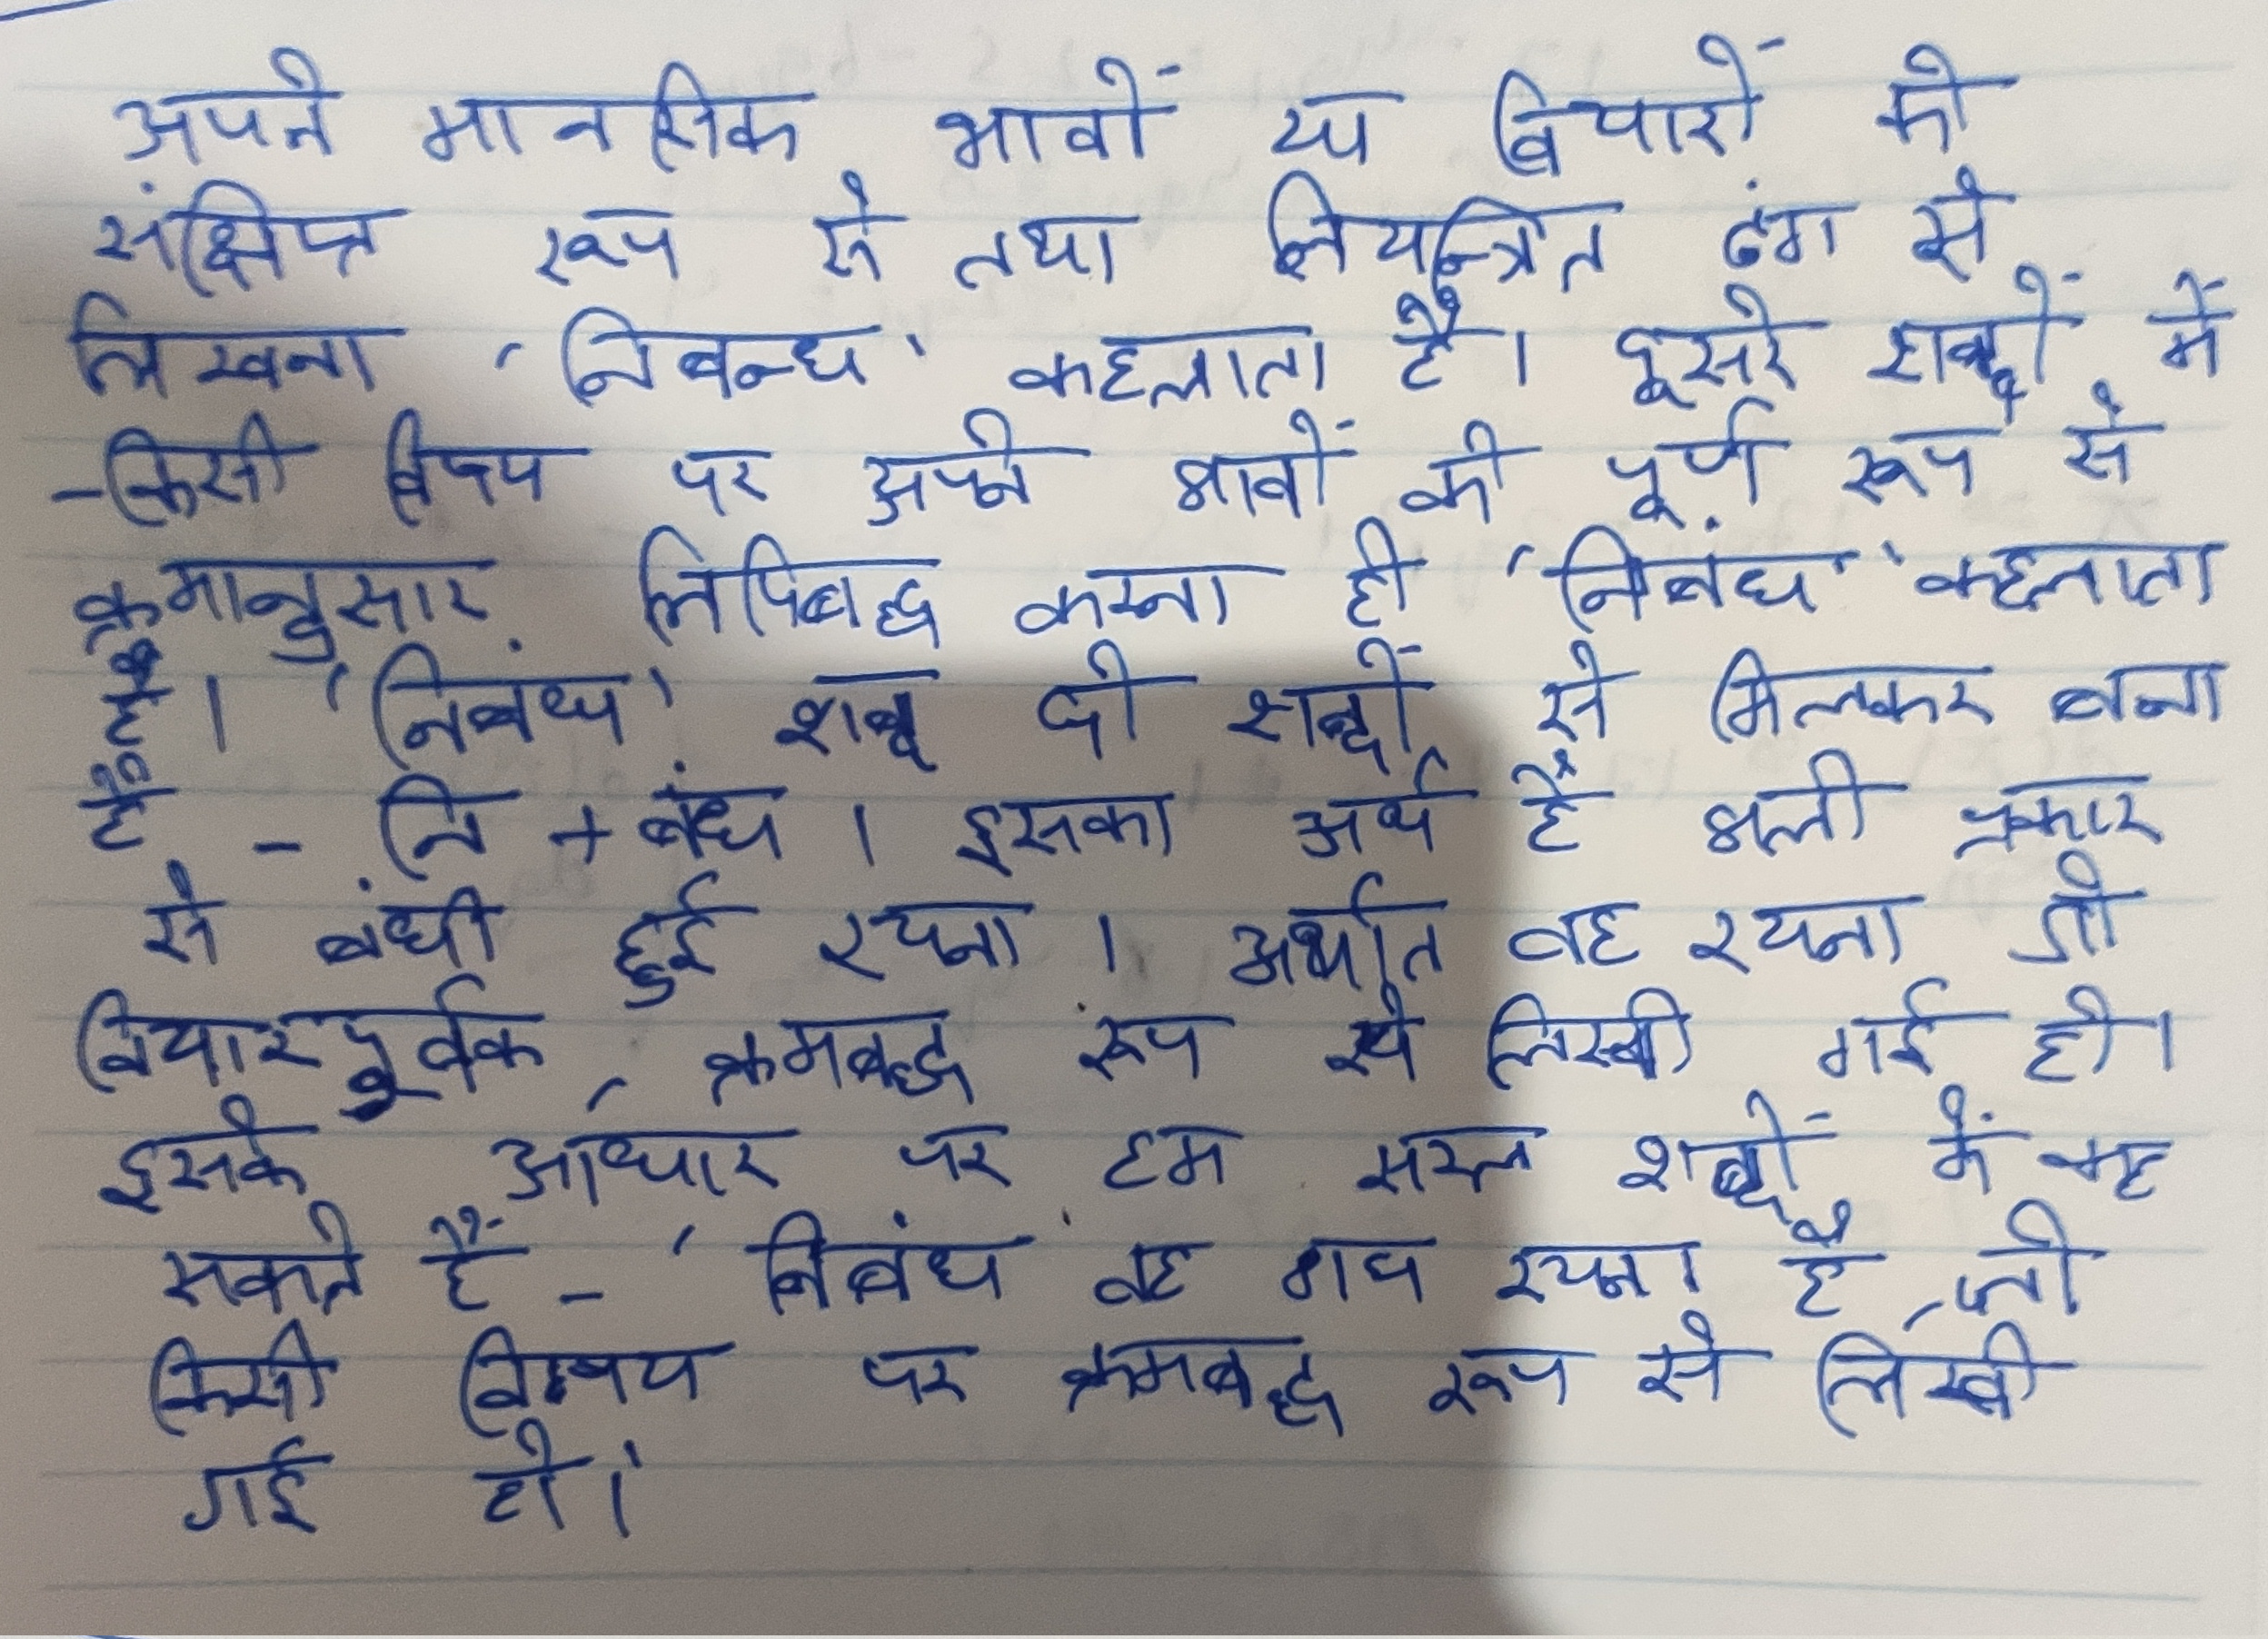 अपने मानसिक भावों या विचारों को
संक्षिप्त रूप से तथा नियन्त्रित ढंग से
लिखना 'निबन्ध' कहलाता है। दूसरे शब्दों में
-किसी विषय पर अपने भावों को पूर्ण रूप से
क्रमानुसार लिपिबद्ध करना ही 'निबंध' कहलाता
है। 'निबंध' शब्द दो शब्दों से मिलकर बना
है - नि + बंध। इसका अर्थ है भली प्रकार
से बंधी हुई रचना। अर्थात वह रचना जो
विचारपूर्वक, क्रमबद्ध रूप से लिखी गई हो।
इसके आधार पर हम सरल शब्दों में कह
सकते हैं - 'निबंध वह गद्य रचना है, जो
किसी विषय पर क्रमबद्ध रूप से लिखी
गई हो।'